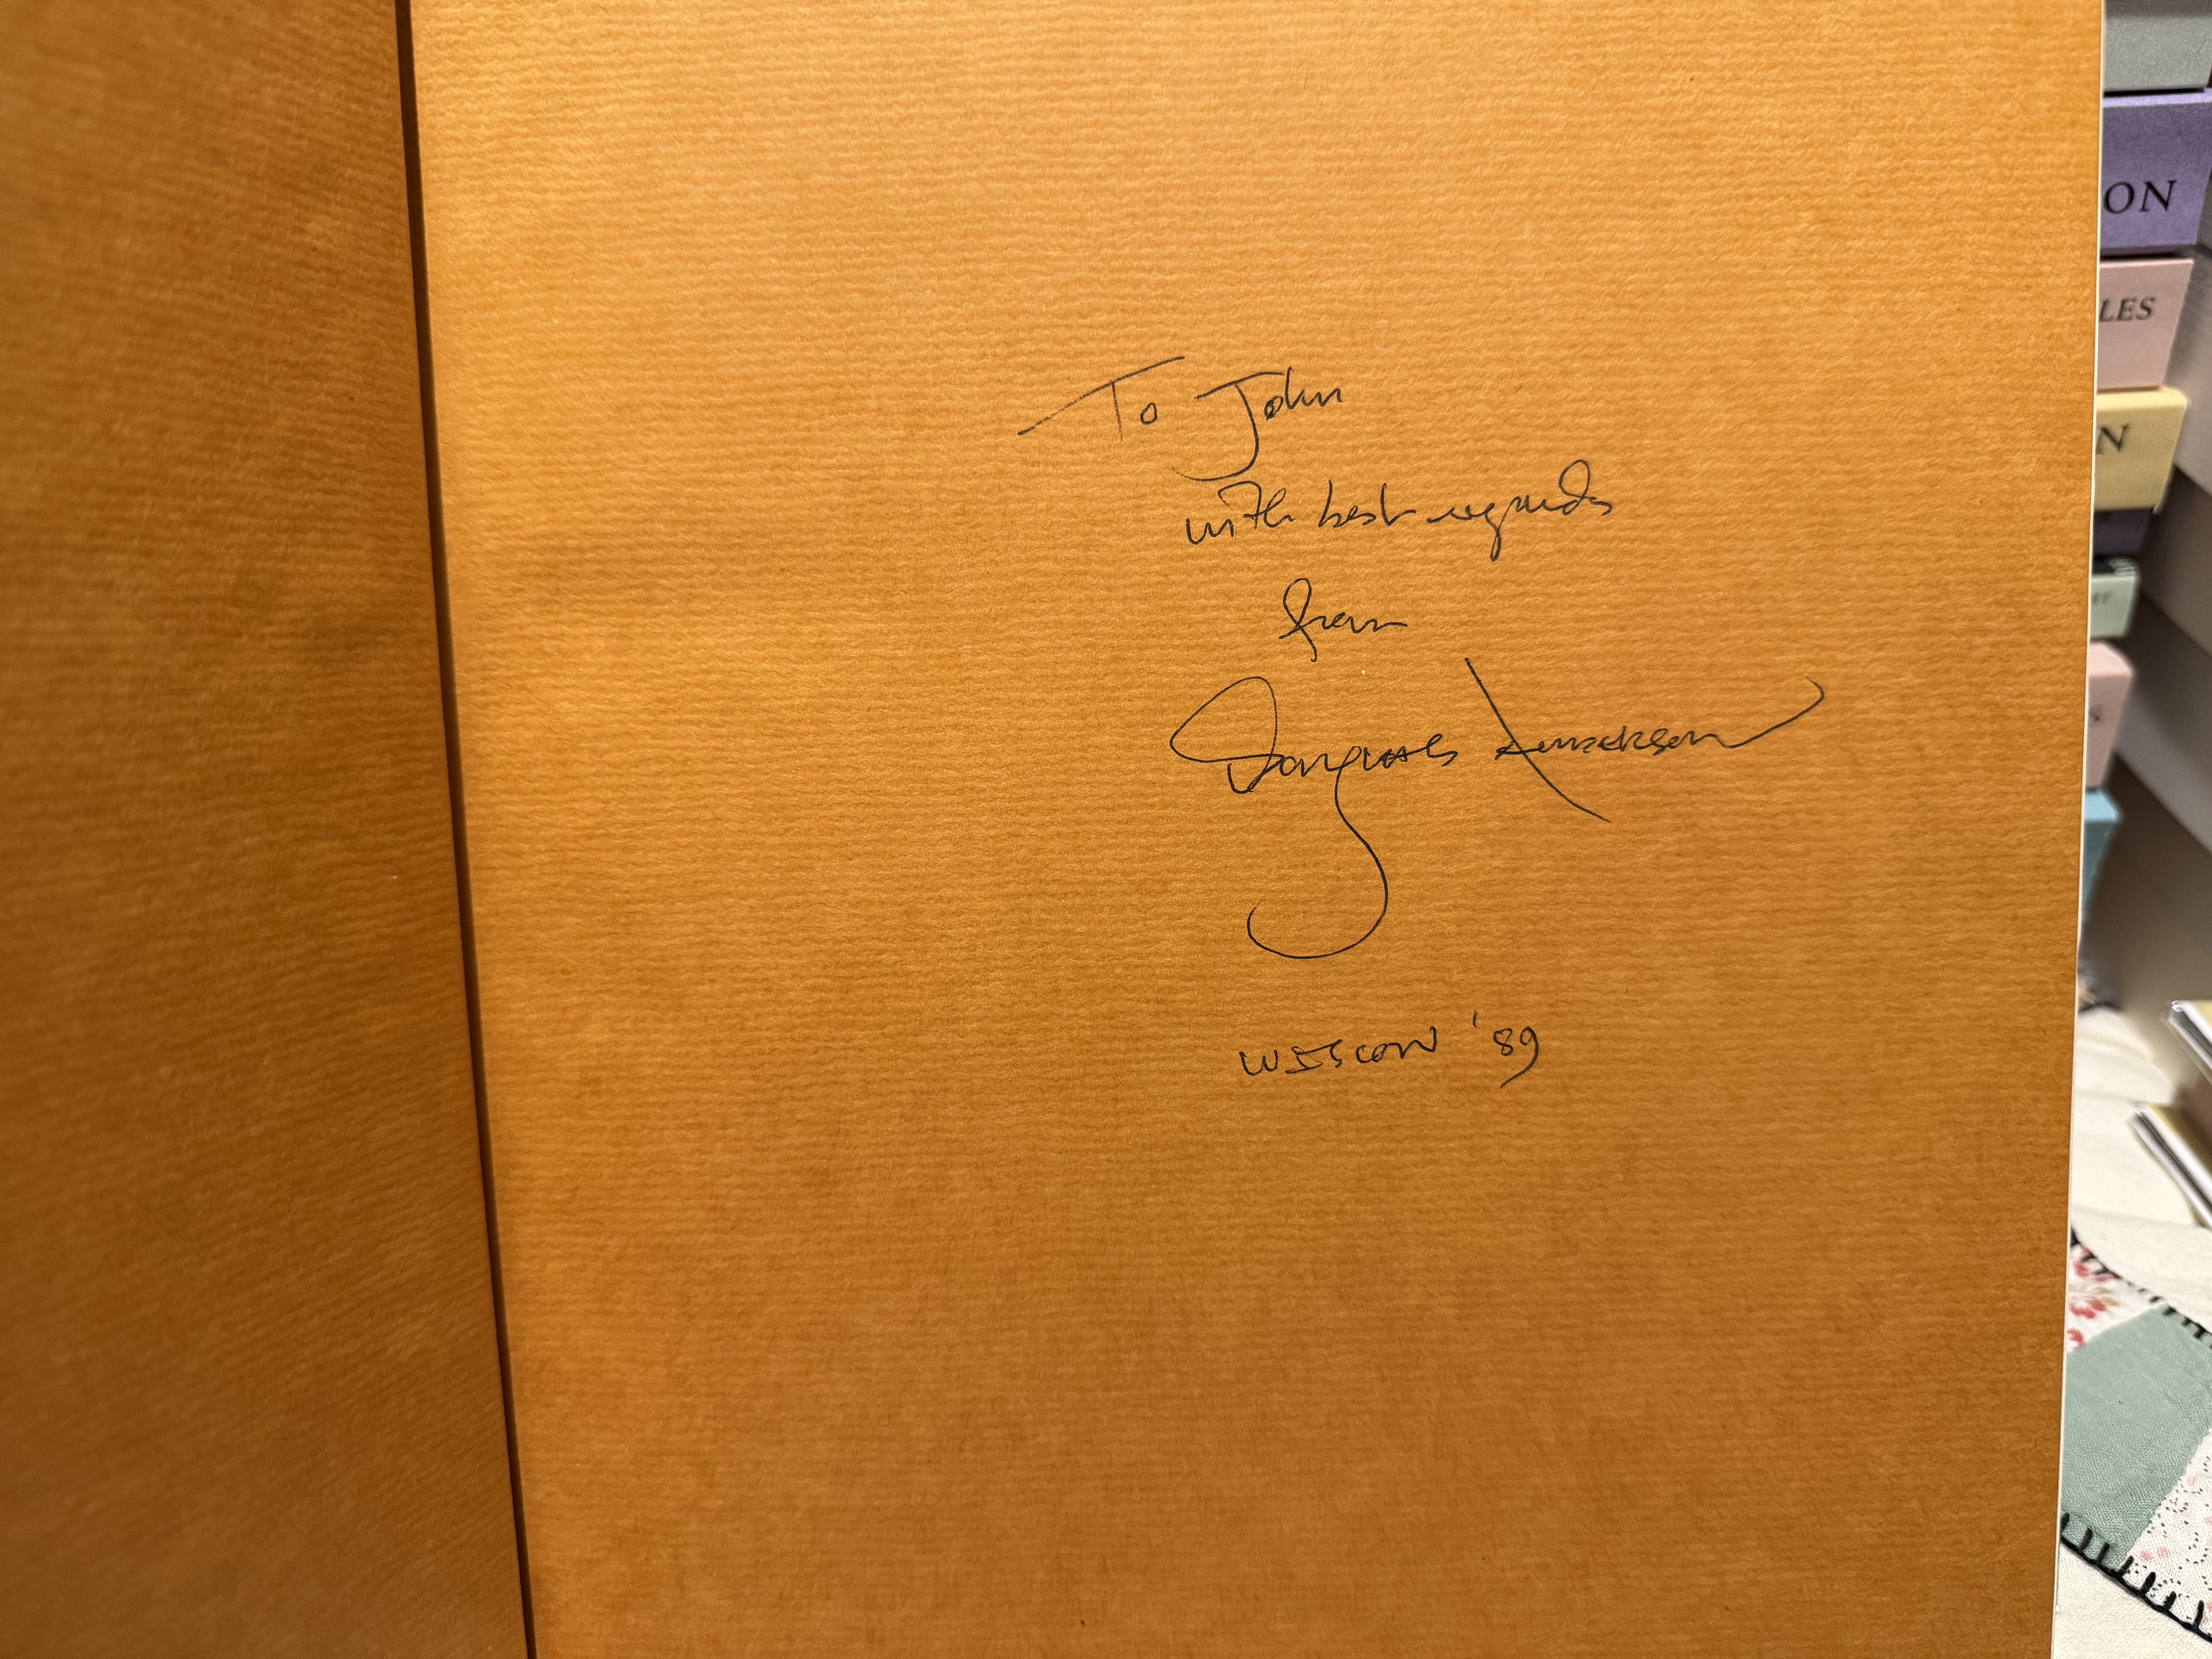 To John
with best regards
from
Douglas Anderson
WISCON '89
ON
LES
N